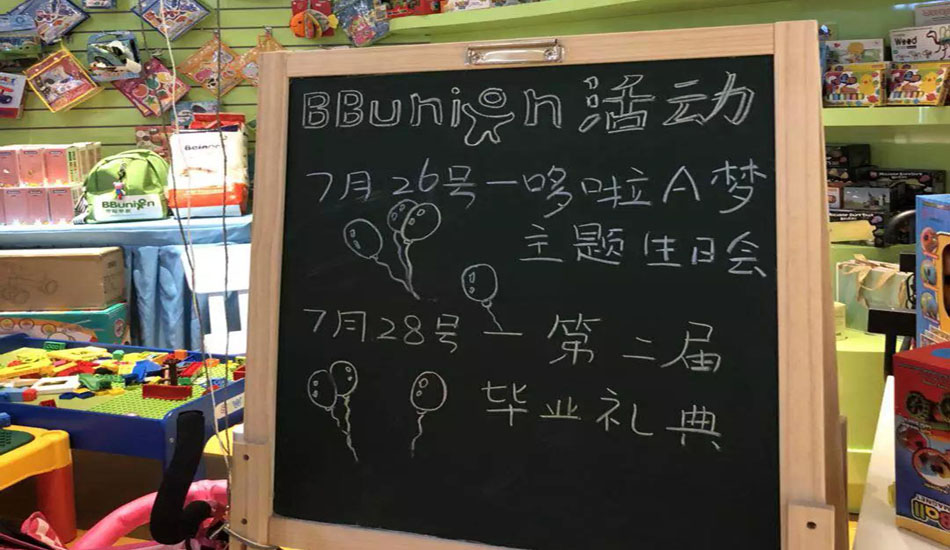 BBunion 活动
7月26号－哆啦A梦
主题生日会
7月28号－第二届
毕业礼典
BBunion